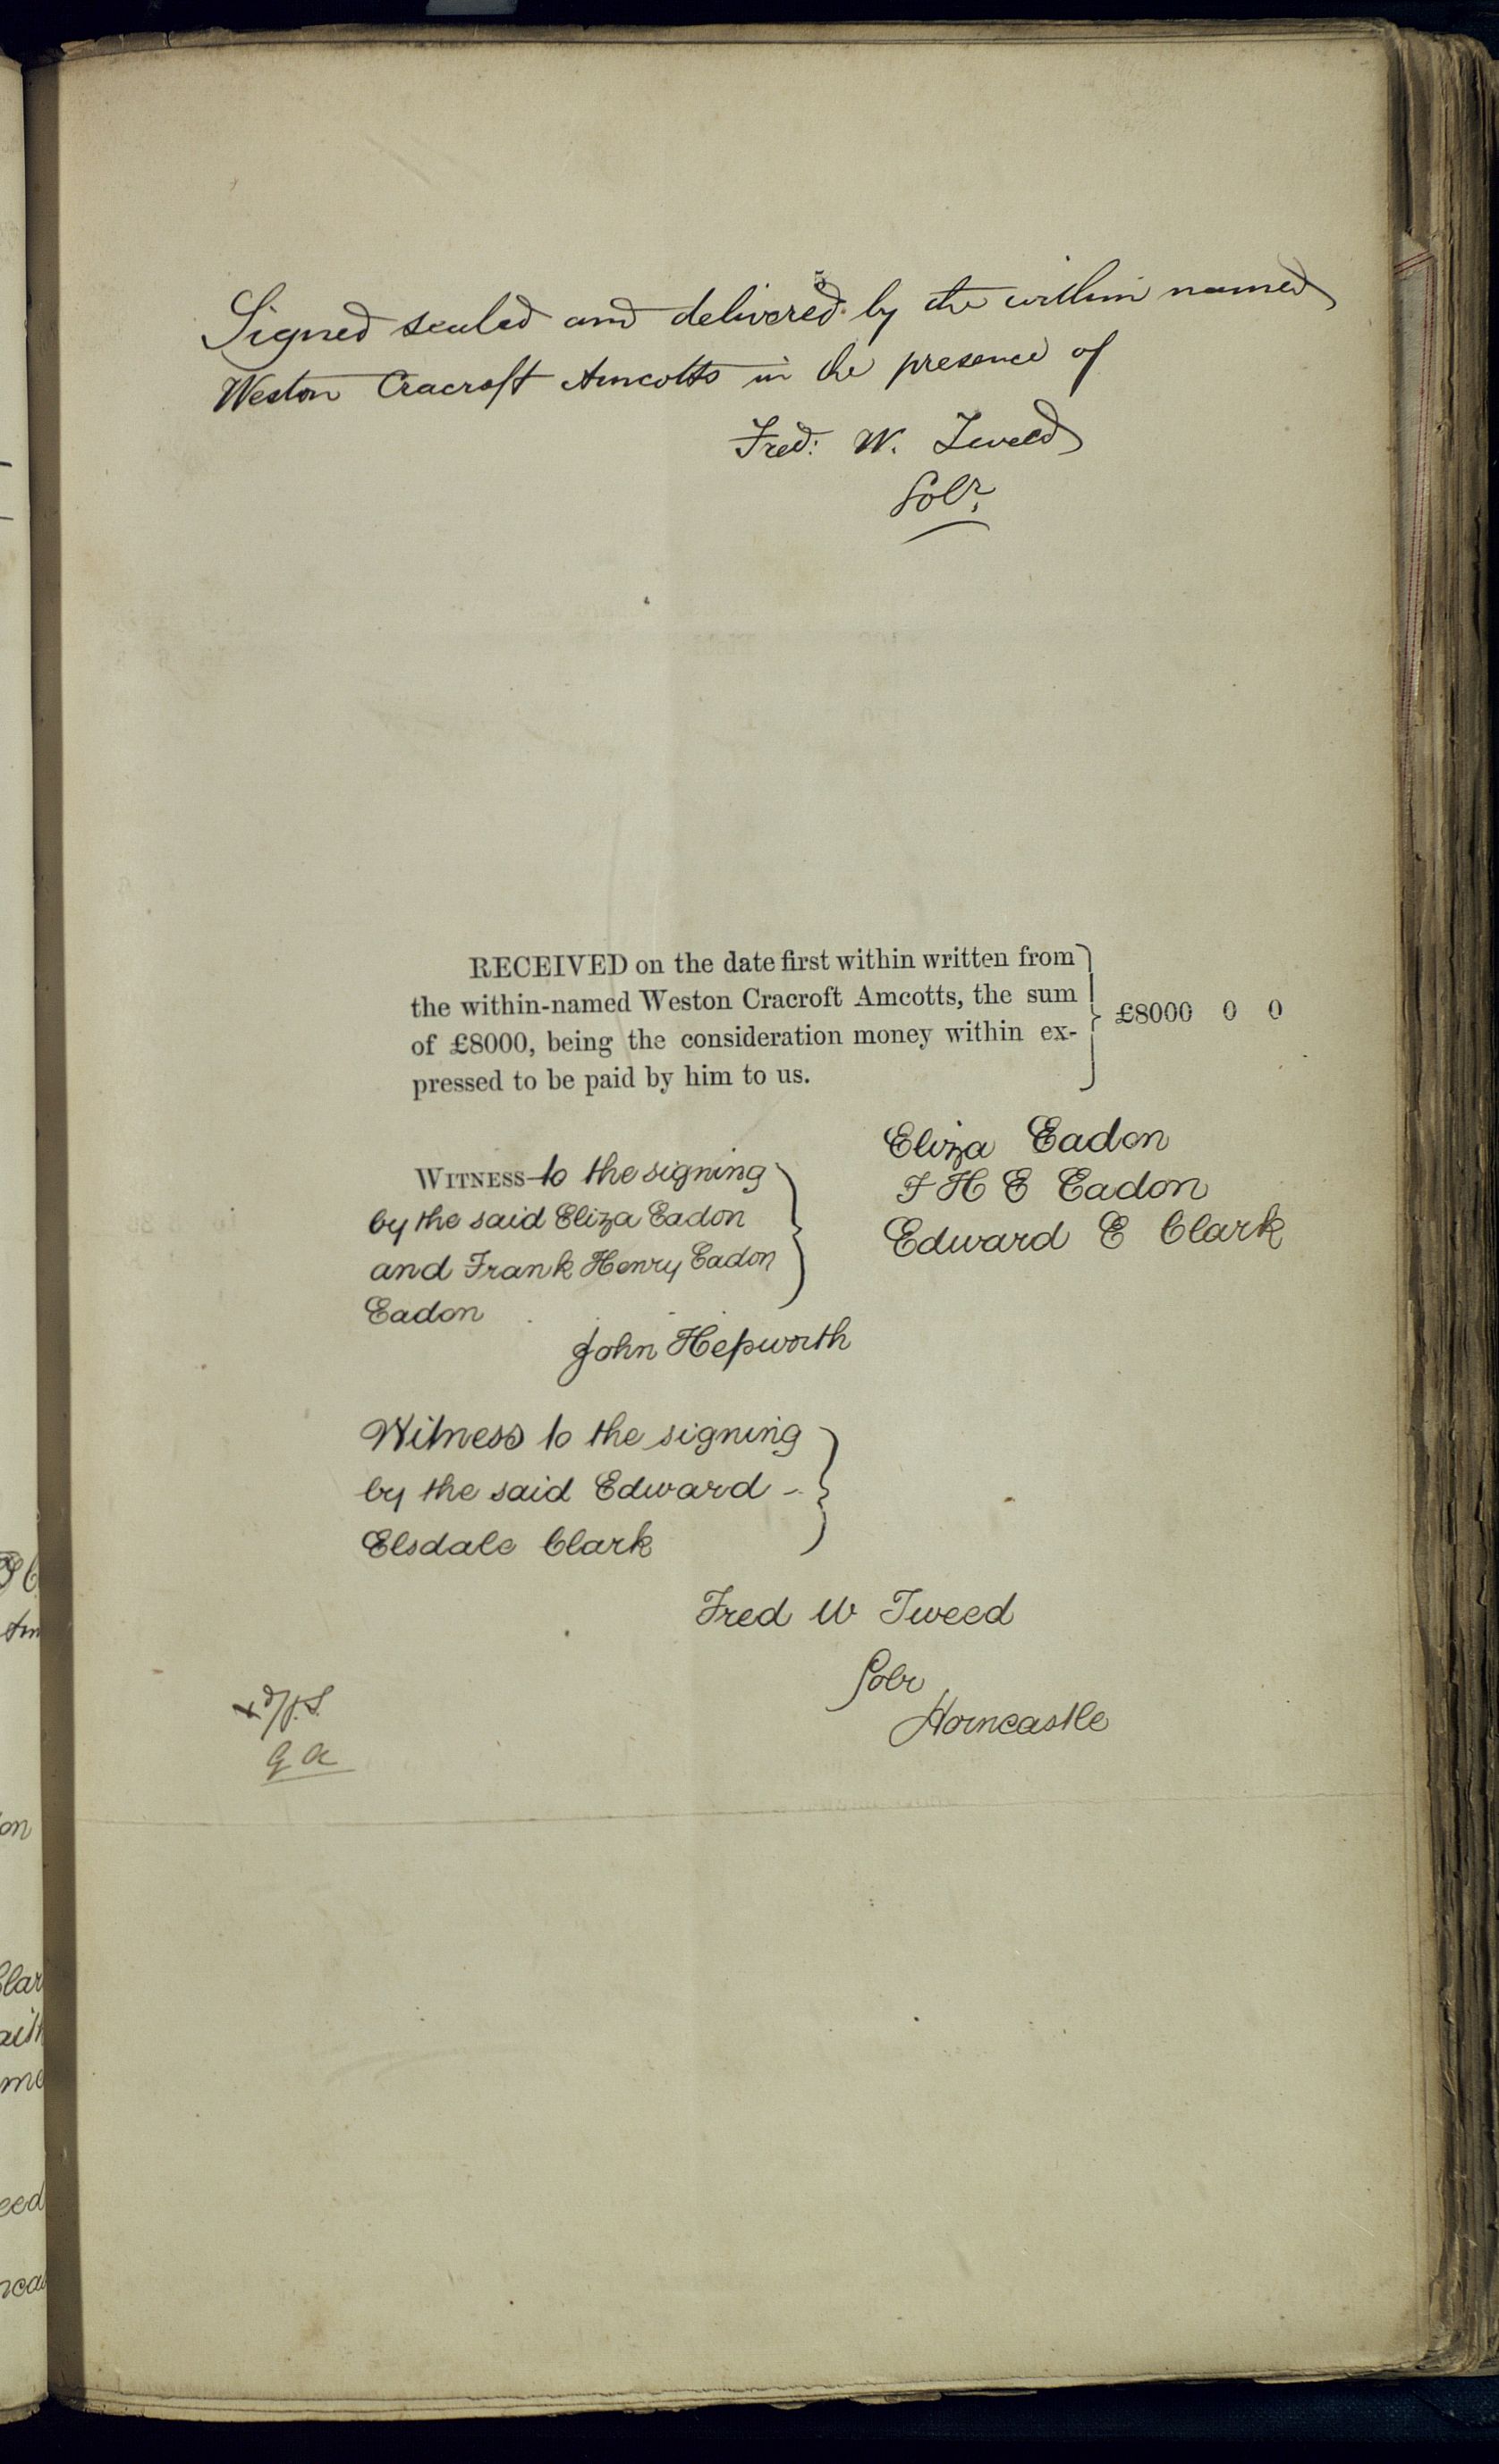 Signed sealed and delivered by the within named
Weston Cracroft Amcotts in the presence of
Fred: W. Tweed
Solr.
RECEIVED on the date first within written from
the within-named Weston Cracroft Amcotts, the sum
of £8000, being the consideration money within ex-
pressed to be paid by him to us.
£8000 0 0
Eliza Eadon
F H E Eadon
Edward E Clark
WITNESS to the signing
by the said Eliza Eadon
and Frank Henry Eadon
Eadon
John Hepworth
Witness to the signing
by the said Edward -
Elsdale Clark
Fred W Tweed
Solr
Horncastle